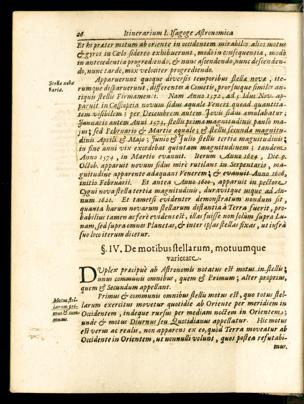 26 Itinerarium I. Isagoge Astronomica
Et hi præter motum ab oriente in occidentem mirabiles alios motus
& gyros in Cœlo sidereo exhibuerunt, modò in consequentia, modò
in antecedentia progrediendo, & nunc ascendendo, nunc descenden-
do, nunc tardè, mox velociter progrediendo.
Stella nova
varia.
Apparuerunt quoque diversis temporibus stella nova, ite-
rumque disparuerunt, differentes à Cometis, prorsusque similes an-
tiquis stellis Firmamenti. Nam Anno 1572, ad Nov. ap-
paruit in Cassiopeia novum sidus æquale Veneri quoad quantita-
tem visibilem; per Decembrem autem Jovis sidus æmulabatur;
Januario autem Anni 1573, stellis primæ magnitudinis paulò ma-
jus; sed Februario & Martio æquale; & stellis secundæ magnitu-
dinis Aprili & Majo; Junio & Julio stellis tertiæ magnitudinis;
in fine anni vix excedebat quintam magnitudinem; tandem
Anno 1574, in Martio evanuit. Iterum Anno 1604, Die
Octob. apparuit novum sidus in Serpentario, ma-
gnitudine apparente adæquans Venerem; & evanuit Anno 1606,
initio Februarii. Et antea Anno 1600, apparuit in pectore
Cygni nova stella tertiæ magnitudinis, duravitque usque ad An-
num 1621. Et tametsi evidenter demonstratum nondum sit,
quanta harum novarum stellarum distantia à Terra fuerit, pro-
babilius tamen ac ferè evidens est, illas fuisse non solum supra Lu-
nam, sed supra omnes Planetas, & inter ipsas stellas fixas, ut infrà
suo loco iterum dicetur.
§. IV. De motibus stellarum, motuumque
varietate.
DUplex præcipuè ab Astronomis notatus est motus in stellis;
unus communis omnibus, quem & Primum; alter proprius,
quem & Secundum appellant.
Motus stel-
larum pri-
mus & com-
munis.
Primus & communis omnibus stellis motus est, quo totus stel-
larum exercitus movetur quotidie ab Oriente per meridiem in
Occidentem, indeque rursus per mediam noctem in Orientem;
unde & motus Diurnus seu Quotidianus appellatur. Hic motus
est verus ac realis, non apparens ex eo, quòd Terra moveatur ab
Occidente in Orientem, ut nonnulli volunt, quos postea refutabi-
mus.